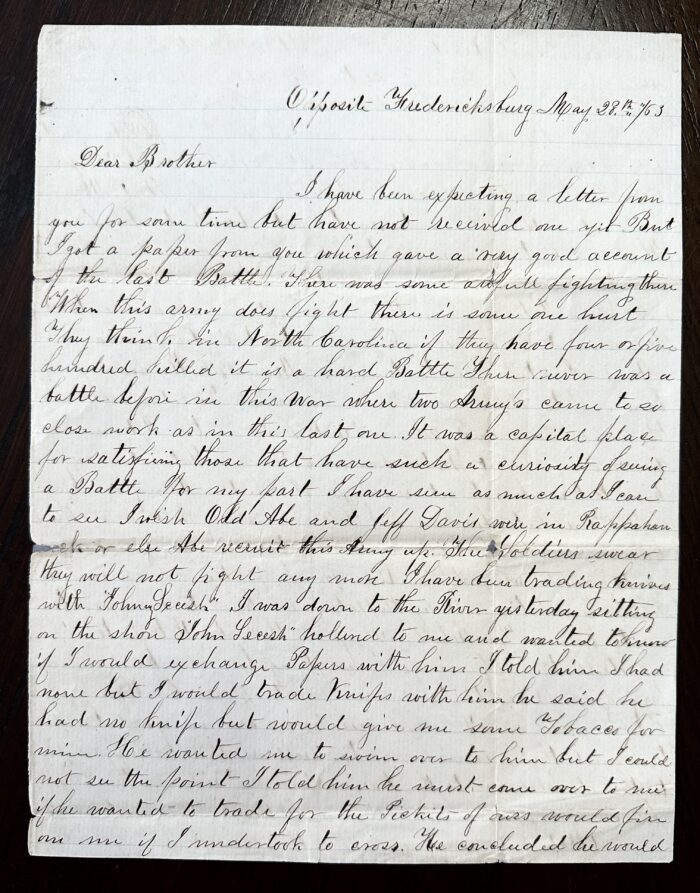 Oposite Fredericksburg May 28.th /63
Dear Brother
I have been expecting a letter from
you for some time but have not received one yit But
I got a paper from you which gave a very good account
of the last Battle. There was some awfull fighting there
When this army does fight there is some one hurt
They think in North Carolina if they have four or five
hundred killed it is a hard Battle There never was a
battle before in this War where two Army's came to so
close work as in this last one. It was a capital place
for satisfiing those that have such a curiosity of seeing
a Battle for my part I have seen as much as I care
to see I wish Old Abe and Jeff Davis were in Rappahan
ock or else Abe recruit this Army up. The Soldiers swear
they will not fight any more I have been trading knives
with "Johny Secesh" I was down to the River yesterday sitting
on the shore "John Secesh" hollend to me and wanted to know
if I would exchange Papers with him I told him I had
none but I would trade Knifs with him he said he
had no knif but would give me some Tobacco for
mine. He wanted me to swim over to him but I could
not see the point I told him he must come over to me
if he wanted to trade for the Pickits of ours would fire
on me if I undertook to cross. He concluded he would